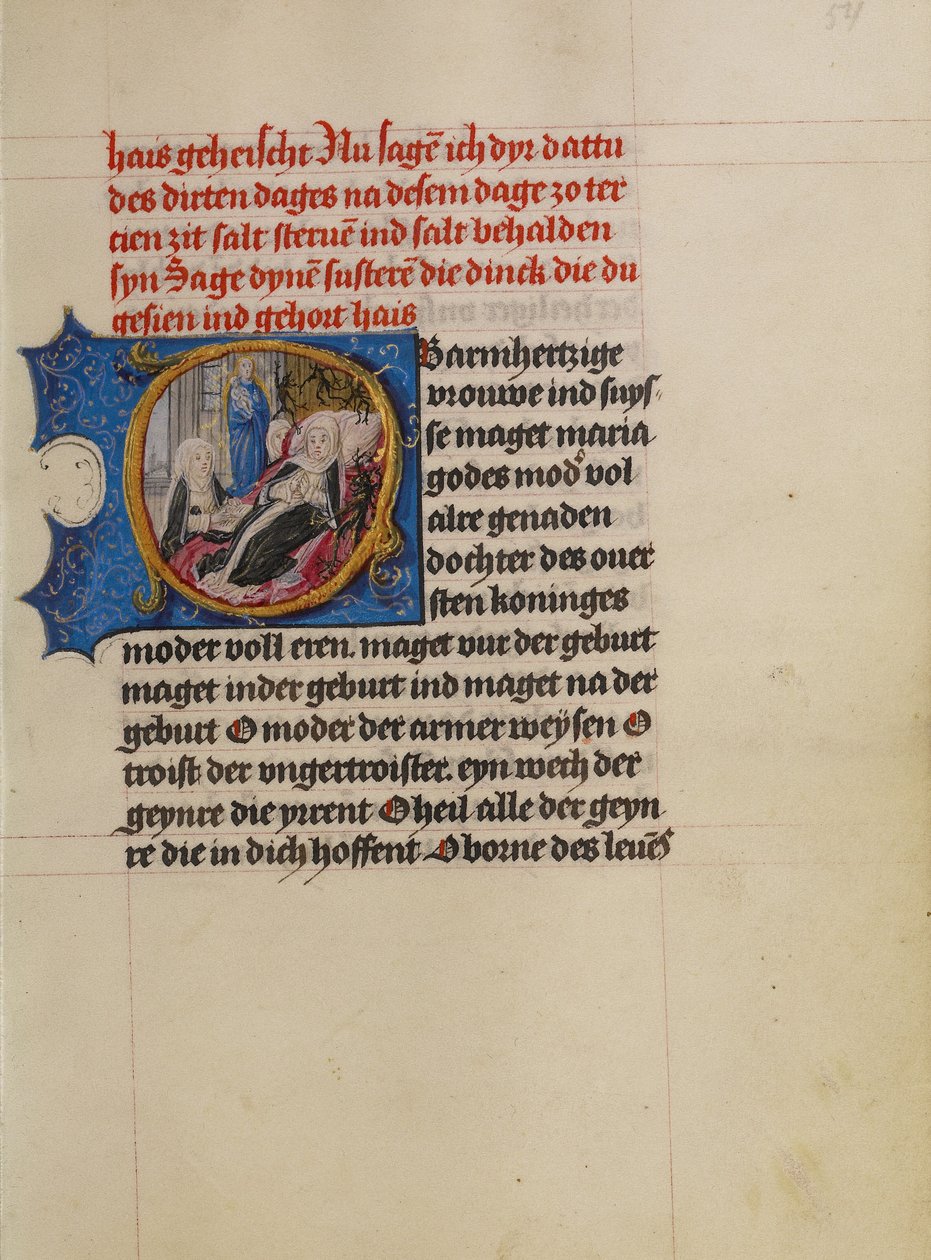 54
hais geheischt Nu sagē ich dyr dattu
des dirten dages na desem dage zo ter
cien zit salt steruē ind salt behalden
syn Sage dynē susterē die dinck die du
gesien ind gehort hais
O Barmhertzige
vrouwe ind suys-
se maget maria
godes mod° vol
alre genaden
dochter des ouer
sten koninges
moder voll eren. maget vur der geburt
maget inder geburt ind maget na der
geburt O moder der armer weÿsen O
troist der vngertroister. eyn wech der
geynre die yrrent O heil alle der geyn
re die in dich hoffent O borne des leuēs